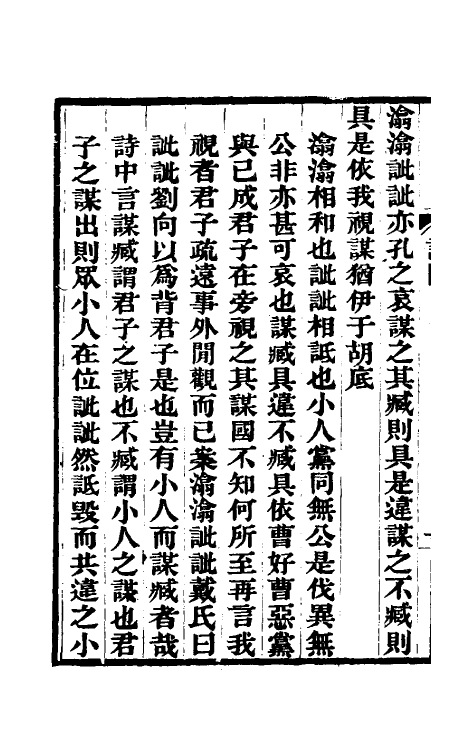 潝潝訿訿亦孔之哀謀之其臧則具是違謀之不臧則
具是依我視謀猶伊于胡底
潝潝相和也訿訿相詆也小人黨同無公是伐異無
公非亦甚可哀也謀臧具違不臧具依曹好曹惡黨
與已成君子在旁視之其謀國不知何所至再言我
視者君子疏遠事外閒觀而已案潝潝訿訿戴氏曰
訿訿劉向以爲背君子是也豈有小人而謀臧者哉
詩中言謀臧謂君子之謀也不臧謂小人之謀也君
子之謀出則眾小人在位訿訿然詆毀而共違之小